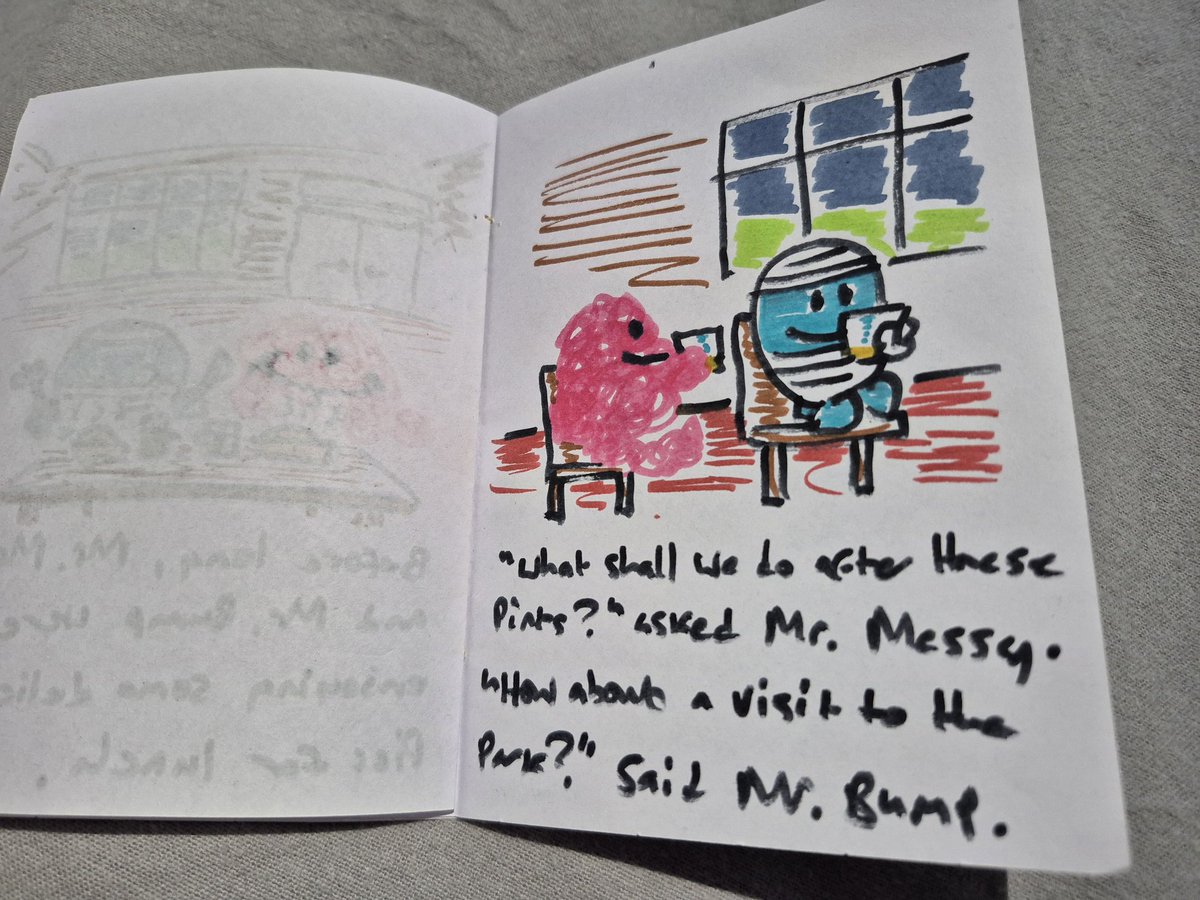 "What shall we do after these
Pints?" asked Mr. Messy.
"How about a visit to the
Park?" Said Mr. Bump.